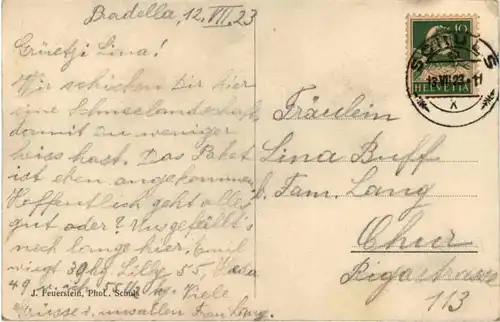 Badella, 12. VII. 23
Grüetzi Lina!
Wir schicken Dir hier
eine Schneelandschaft,
damit Du weniger
heiss hast. Das Paket
ist eben angekommen.
Hoffentlich geht alles
gut oder? Uns gefällt's
noch lange hier. Emil
wiegt 39 kg, Lilly 55,
49
Viele
Grüsse
J. Feuerstein, Phot., Schuls
10
HELVETIA
SCHULS
12.VII.23.-11
X
Fräulein
Lina Buff
b. Fam. Lang
Chur
Rigastrasse
113